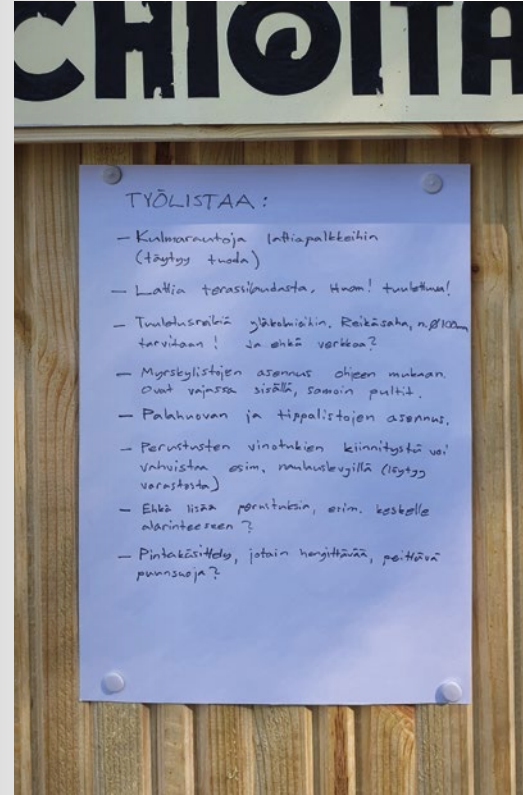 CHIOITA
TYÖLISTAA:
- Kulmarautoja lattiapalkkeihin
(täytyy tuoda)
- Lattia terassilaudasta. Huom! tuuletus!
- Tuuletusreikiä yläkolmioihin. Reikäsaha, n. Ø100mm
tarvitaan! Ja ehkä verkkoa?
- Myrskylistojen asennus ohjeen mukaan.
Ovat vajassa sisällä, samoin pultit.
- Palahuovan ja tippalistojen asennus.
- Perustusten vinotukien kiinnitystä voi
vahvistaa esim. naulauslevyillä (löytyy
varastosta)
- Ehkä lisää perustuksia, esim. keskelle
alarinteeseen?
- Pintakäsittely, jotain hengittävää, peittävä
puunsuoja?